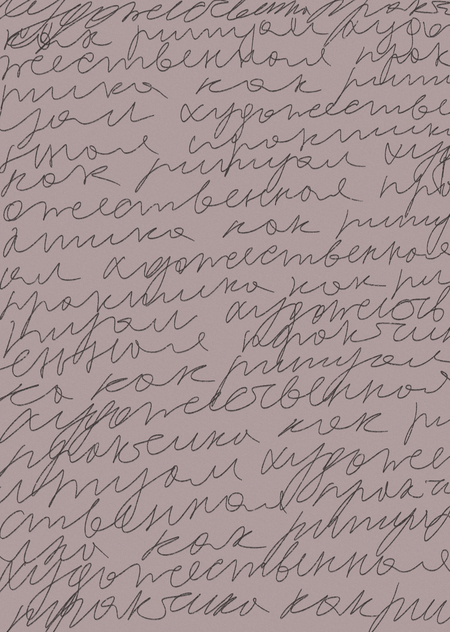 художественная практи
как ритуал худо
жественная прак
тика как риту
уал художестве
нная практика
как ритуал худ
ожественная пра
ктика как риту
ал художественная
практика как ри
туал художеств
енная практи
ка как ритуал
художественная
практика как ри
туал художе
ственная практ
ика как ритуал
художественная
практика как ри